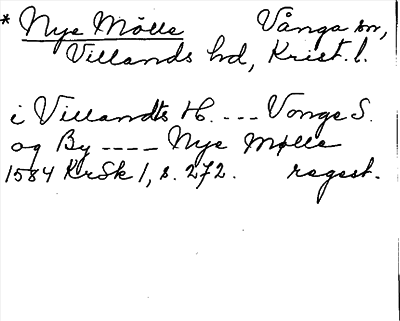 * Nye Mölle Vånga sn,
Villands hd, Krist. l.
i Villandts H. --- Vonge S.
og By ---- Nye Mølle
1584 KrSk 1, s. 272. regest.